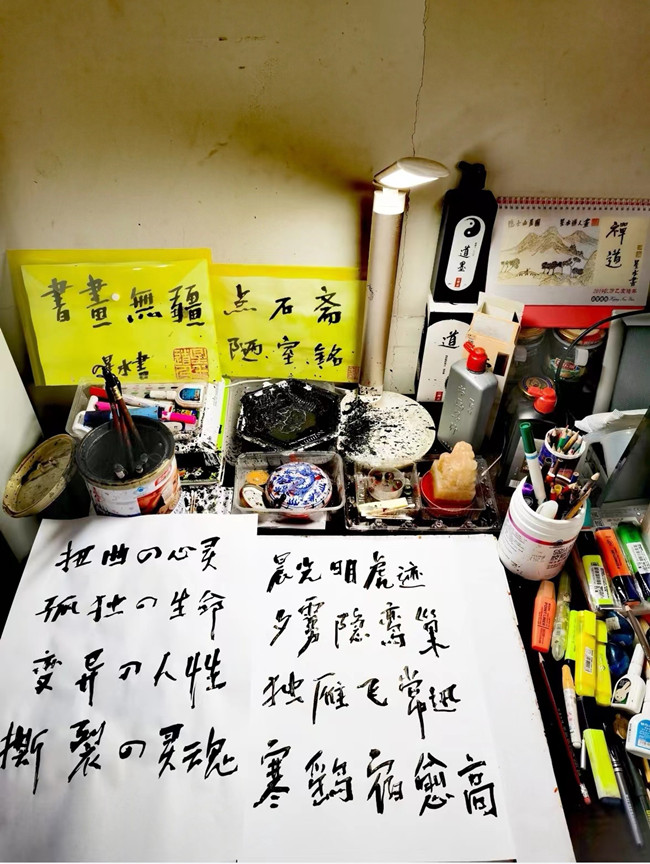 書畫無疆
墨水書
点石斋
陋室銘
道墨
道
禪道
扭曲の心灵
孤独の生命
变异の人性
撕裂の灵魂
晨光明虎迹
夕雾隐鸾巢
独雁飞常迅
寒鸡宿愈高